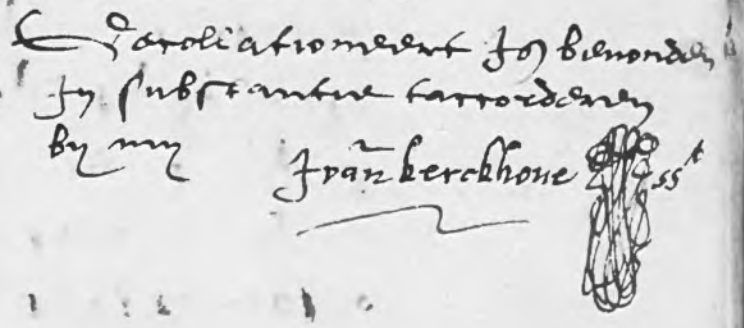 Gecollationeert Is bevonden
In substantie taccorderen
by my
J van kerckhove sst